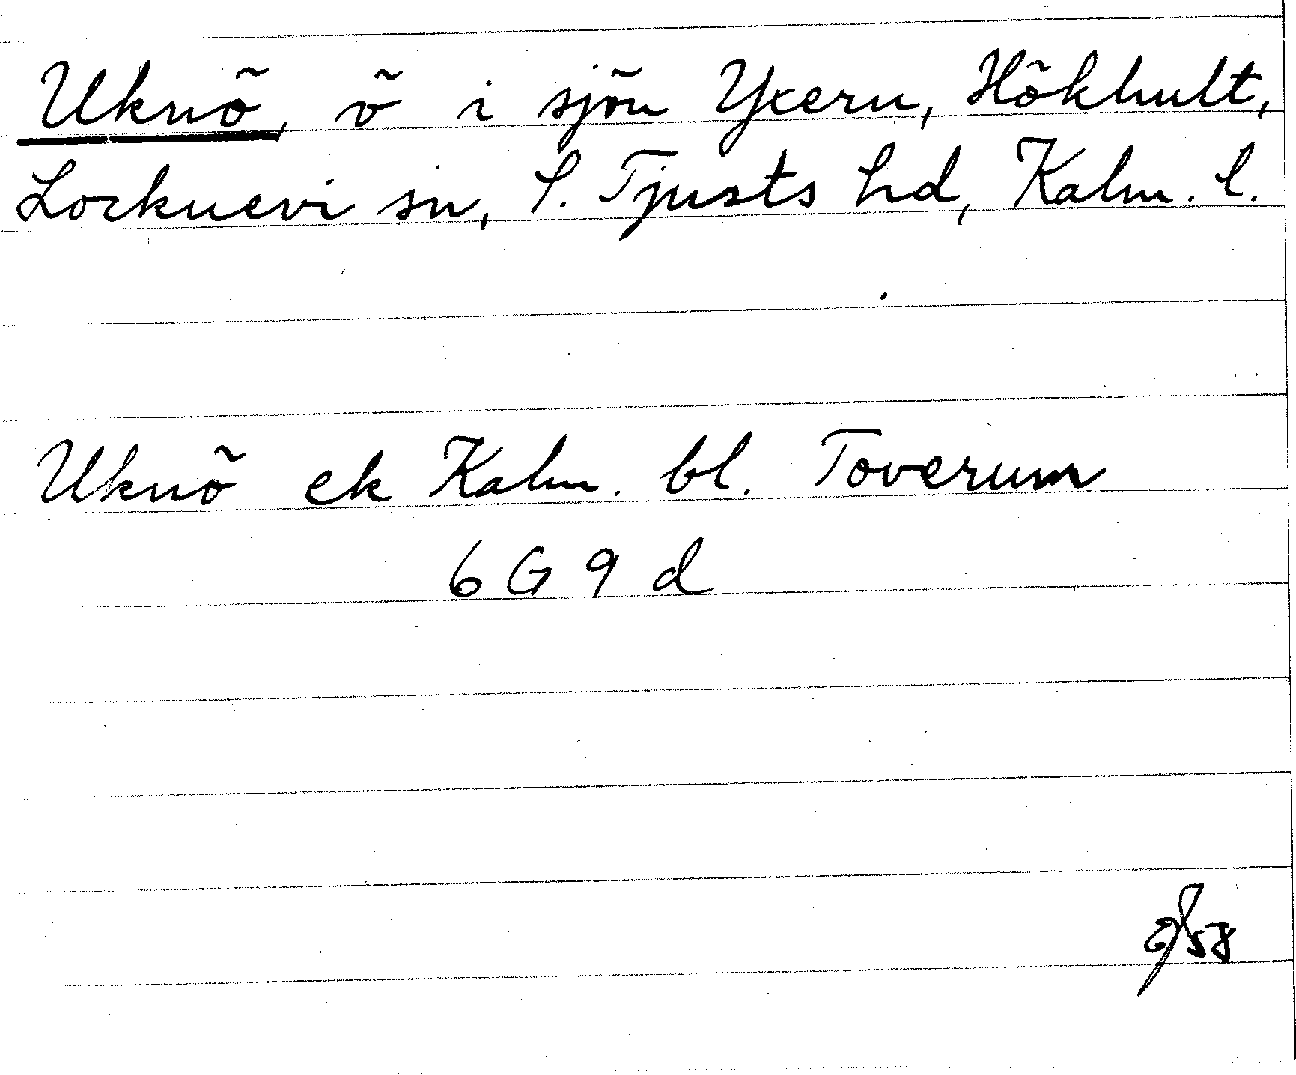 Uknö, ö i sjön Yxern, Hökhult,
Locknevi sn, S. Tjusts hd, Kalm. l.
Uknö ek Kalm. bl. Toverum
6 G 9 d